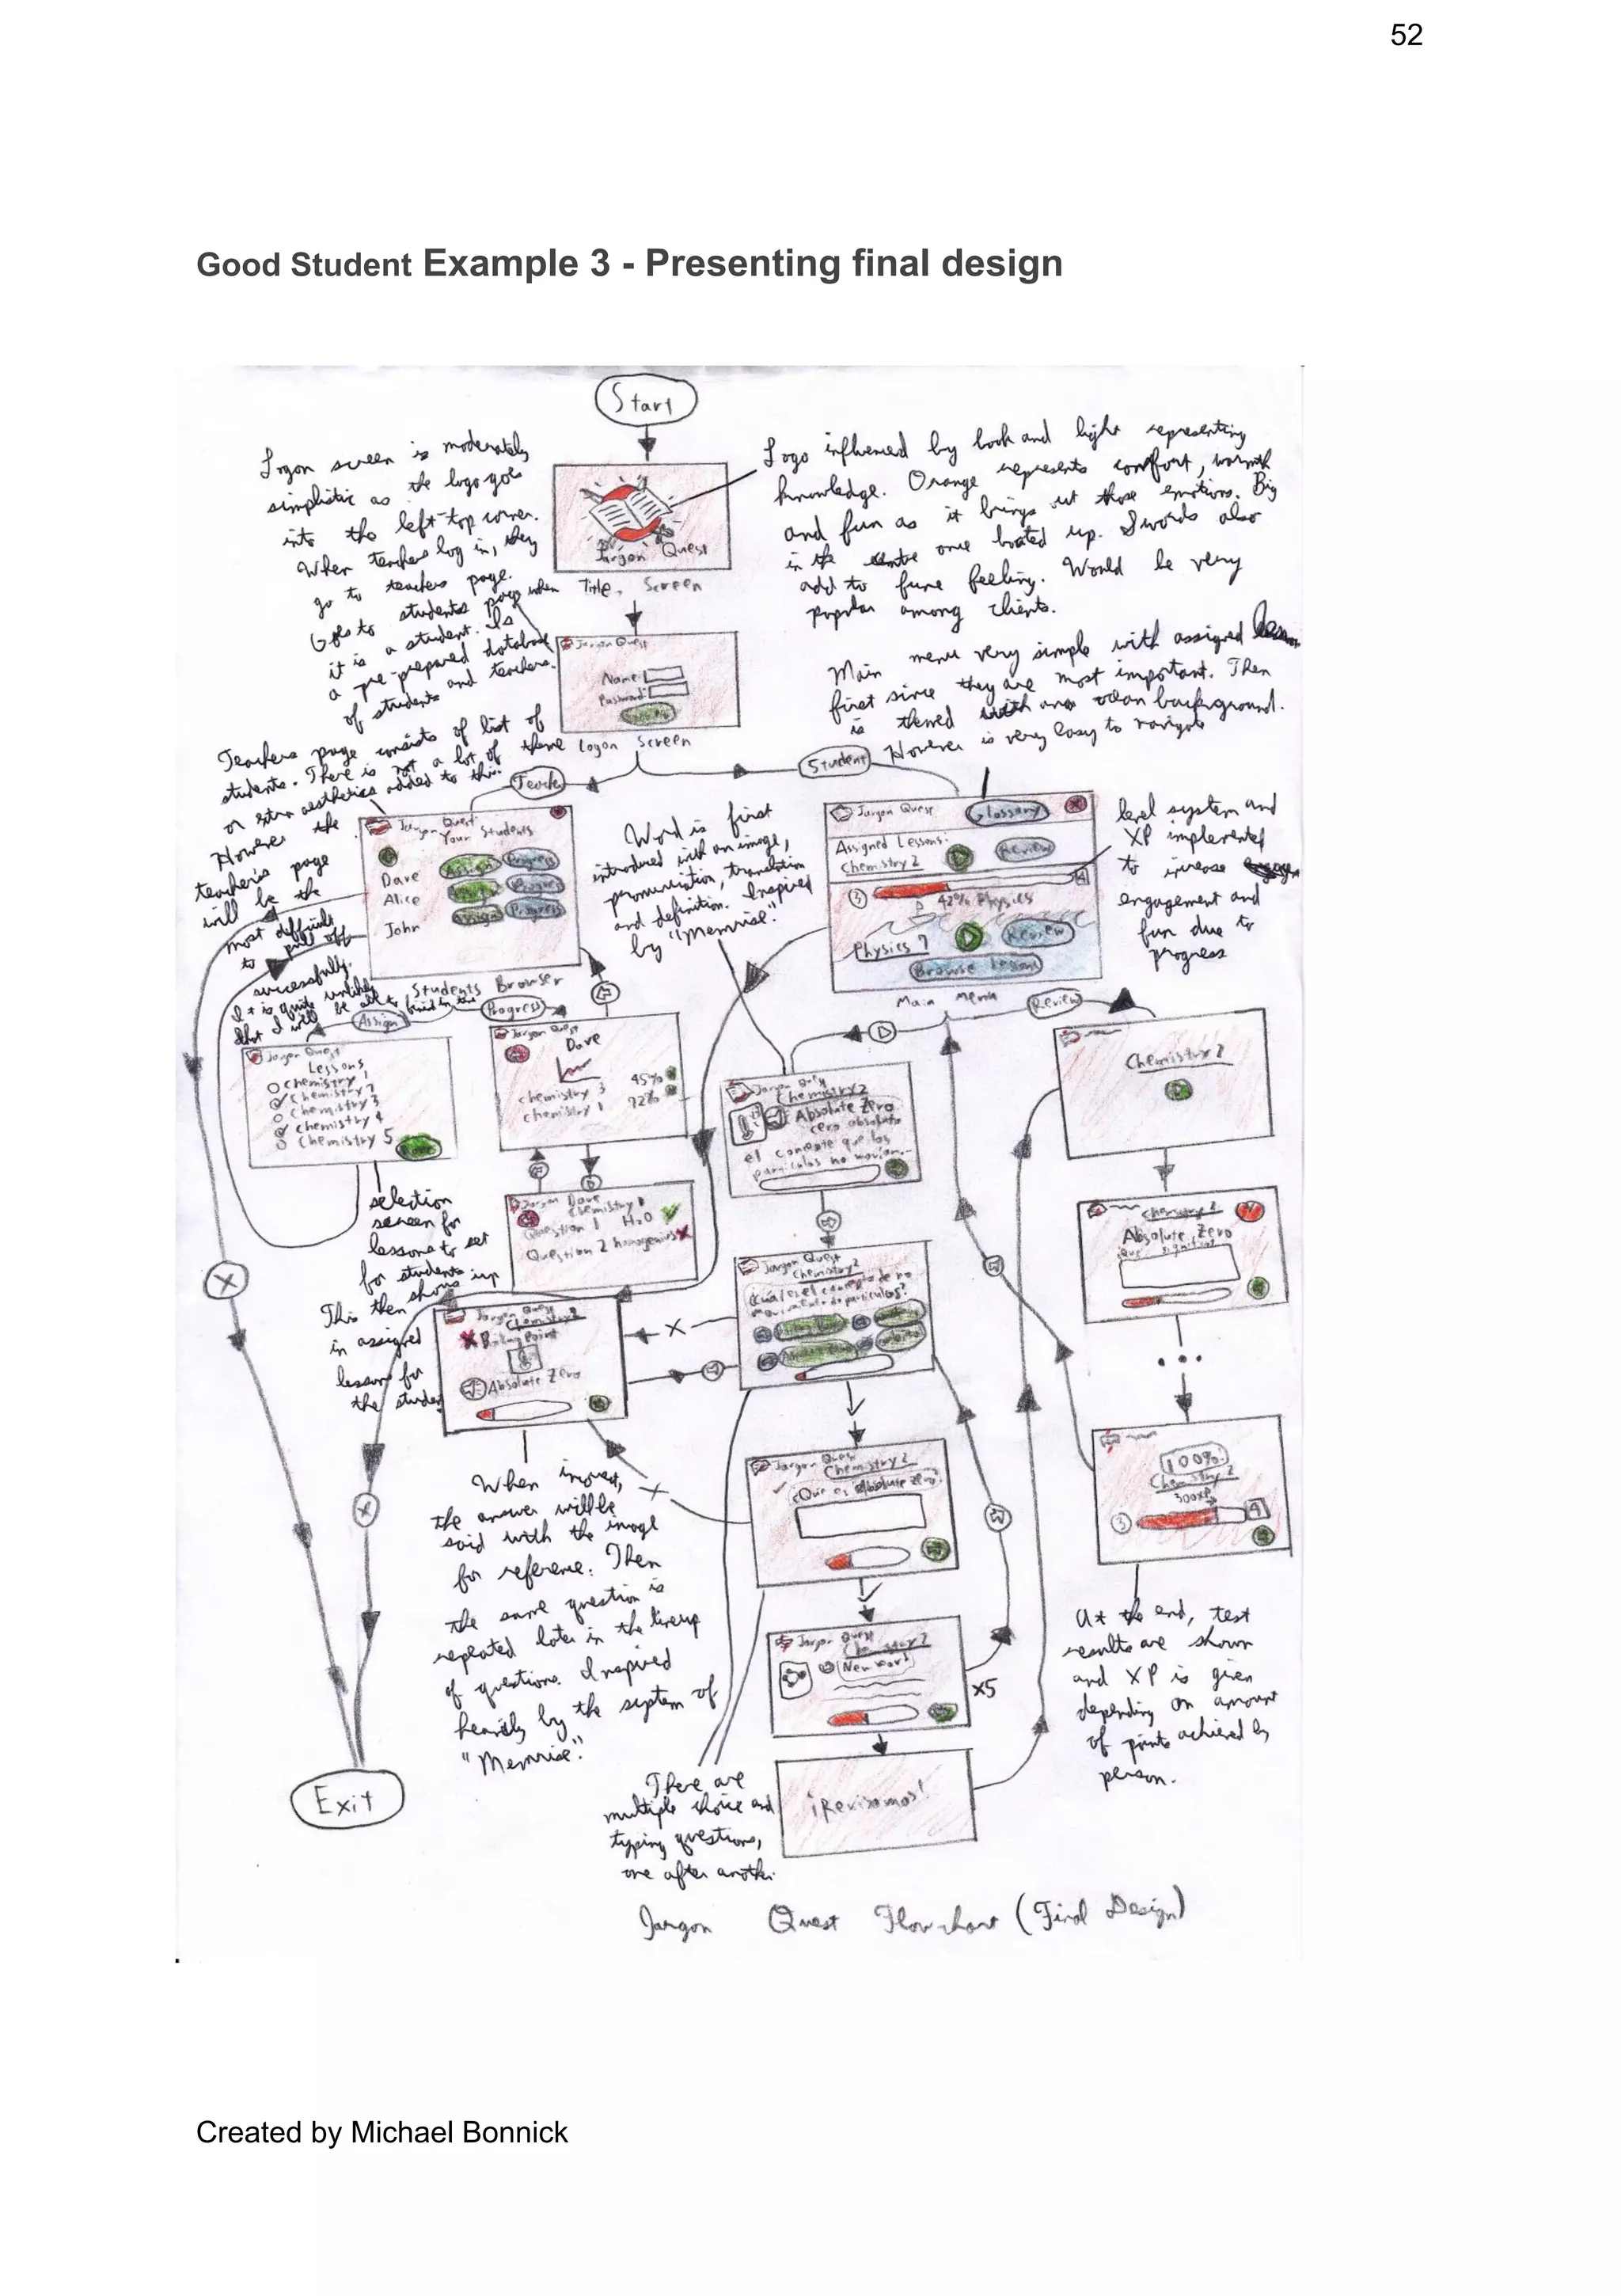 52
Good Student Example 3 - Presenting final design
Start
Logon screen is moderately
simplistic as the logo goes
into the left-top corner.
When teachers log in, they
go to teachers page.
Goes to students page when
it is a student. Is
a pre-prepared database
of students and teachers.
Jargon Quest
Title Screen
Logo influenced by book and light representing
knowledge. Orange represents comfort, warmth
and fun as it brings out those emotions. Big
in the centre once booted up. Swords also
add to fune feeling. Would be very
popular among clients.
Jargon Quest
Name:
Password:
Logon Screen
Main menu very simple with assigned
first since they are most important. Then
is themed with an ocean background.
However is very easy to navigate
Teacher
Student
Teachers page consists of list of
students. There is not a lot of theme
or extra aesthetics added to this.
However the
teacher's page
will be the
most difficult
to pull off
successfully.
It is quite unlikely
that I will be able to
Jargon Quest
Your Students
Dave Assign Progress
Alice Assign Progress
John Assign Progress
Students Browser
Word is first
introduced with an image,
pronunciation, translation
and definition. Inspired
by "Memrise".
Jargon Quest Glossary X
Assigned Lessons:
Chemistry 2 Review
3 42% Physics 4
Physics 7 Review
Browse Lessons
Main menu
level system and
XP implemented
to increase
engagement and
fun due to
progress
Assign
Progress
Review
Jargon Quest
Lessons
Chemistry 1
Chemistry 2
Chemistry 3
Chemistry 4
Chemistry 5
Jargon Quest
Dave
chemistry 3 45%
chemistry 1 72%
Jargon Quest
Chemistry 2
Absolute Zero
cero absoluto
el concepto que las
particulas no movian
Chemistry 2
selection
screen for
lessons to set
for students
This then shows up
in assigned
lessons for
the student
Jargon Dave
Chemistry 1
Question 1 H₂O
Question 2 homogenius
Jargon Quest
Chemistry 2
¿Cuál es el concepto de no
movimiento de particulos?
Chemistry 2
Absolute Zero
X
Jargon Quest
Chemistry 2
X Boiling Point
Absolute Zero
X
...
When incorrect,
the answer will be
said with the image
for reference. Then
the same question is
repeated later in the lineup
of questions. Inspired
heavily by the system of
"Memrise".
X
Jargon Quest
Chemistry 2
¿Que es Absolute Zero?
100%
Chemistry 2
300XP
3 4
X
Jargon Quest
Chemistry 2
New Word
x5
At the end, test
results are shown
and XP is given
depending on amount
of points achieved by
person.
Exit
There are
multiple choice and
typing questions,
one after another.
¡Revisamos!
Jargon Quest Flowchart (Final Design)
Created by Michael Bonnick